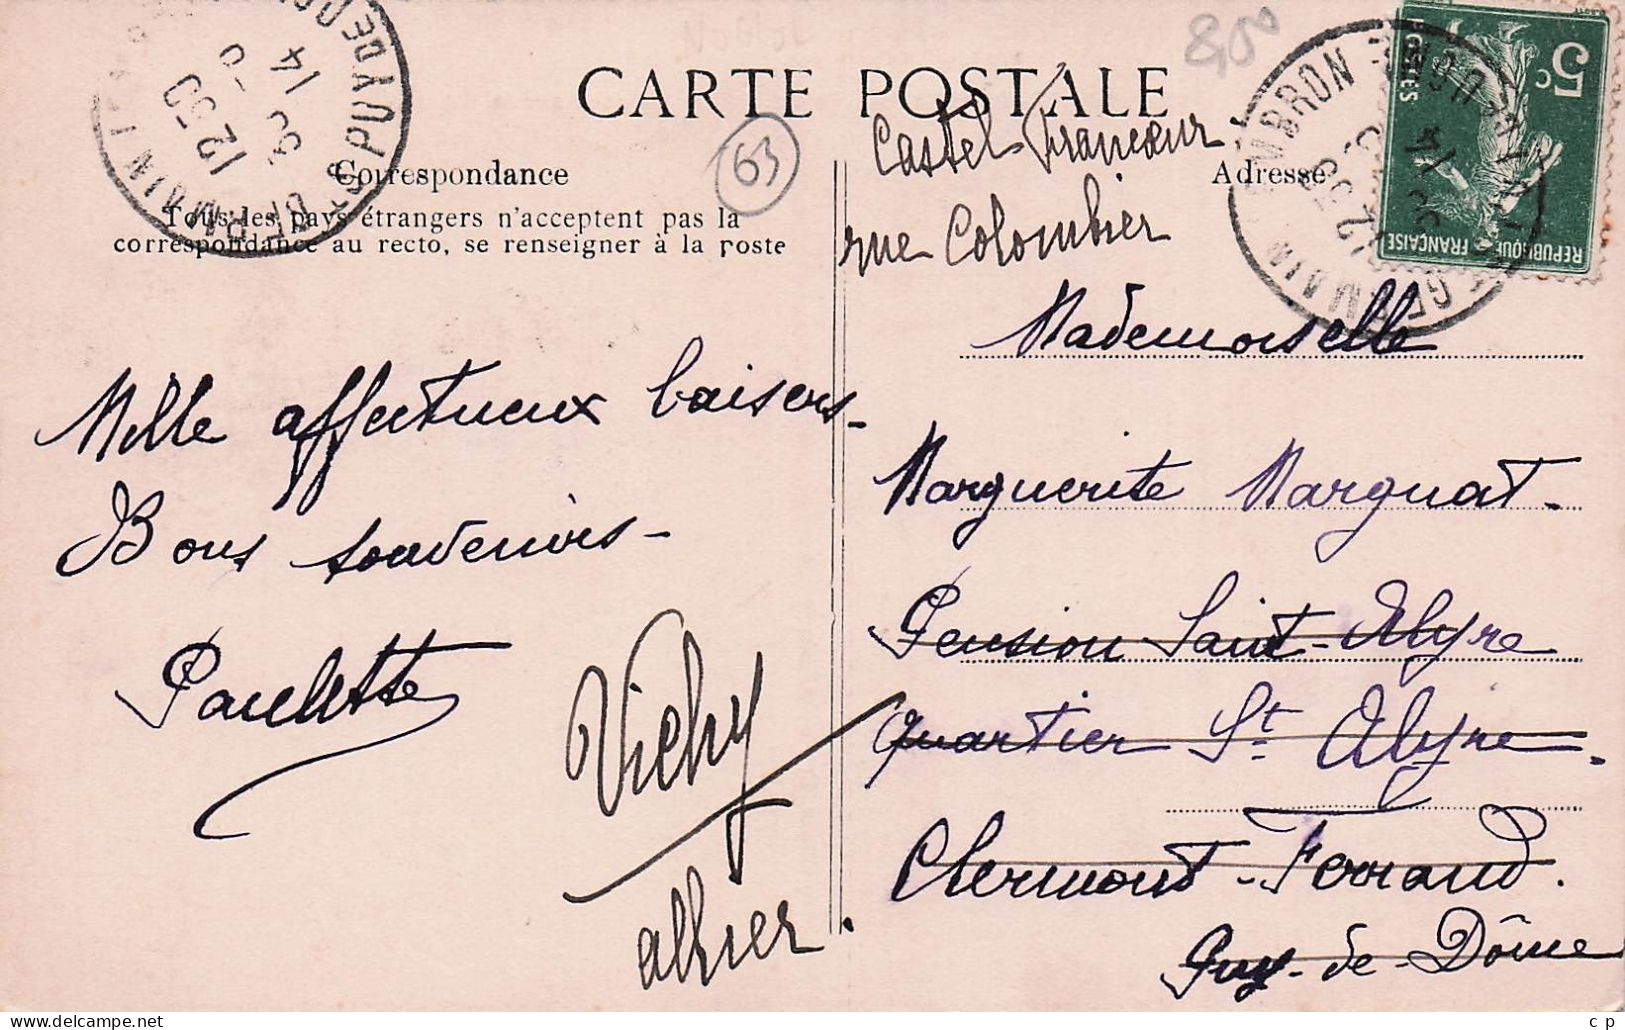 CARTE POSTALE
8,00
63
Correspondance
Tous les pays étrangers n'acceptent pas la
correspondance au recto, se renseigner à la poste
Adresse
PUY DE DOME
12 30
14
5c
POSTES
REPUBLIQUE FRANÇAISE
Castel Francœur
rue Colombier
Mademoiselle
Marguerite Marguat.
Pension Saint-Alyre
Quartier St Alyre.
Clermont-Ferrand.
Puy-de-Dôme
Mille affectueux baisers.
Bons souvenirs-
Paulette
Vichy
allier.
c p